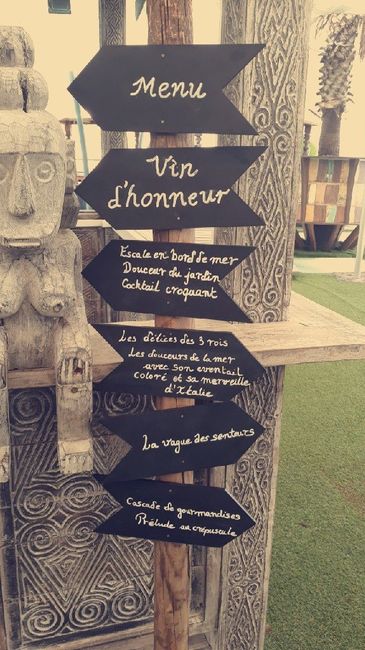 Menu
Vin
d'honneur
Escale en bord de mer
Douceur du jardin
Cocktail croquant
Les délices des 3 rois
Les douceurs de la mer
avec son éventail
coloré et sa merveille
d'Italie
La vague des senteurs
Cascade de gourmandises
Prélude au crépuscule